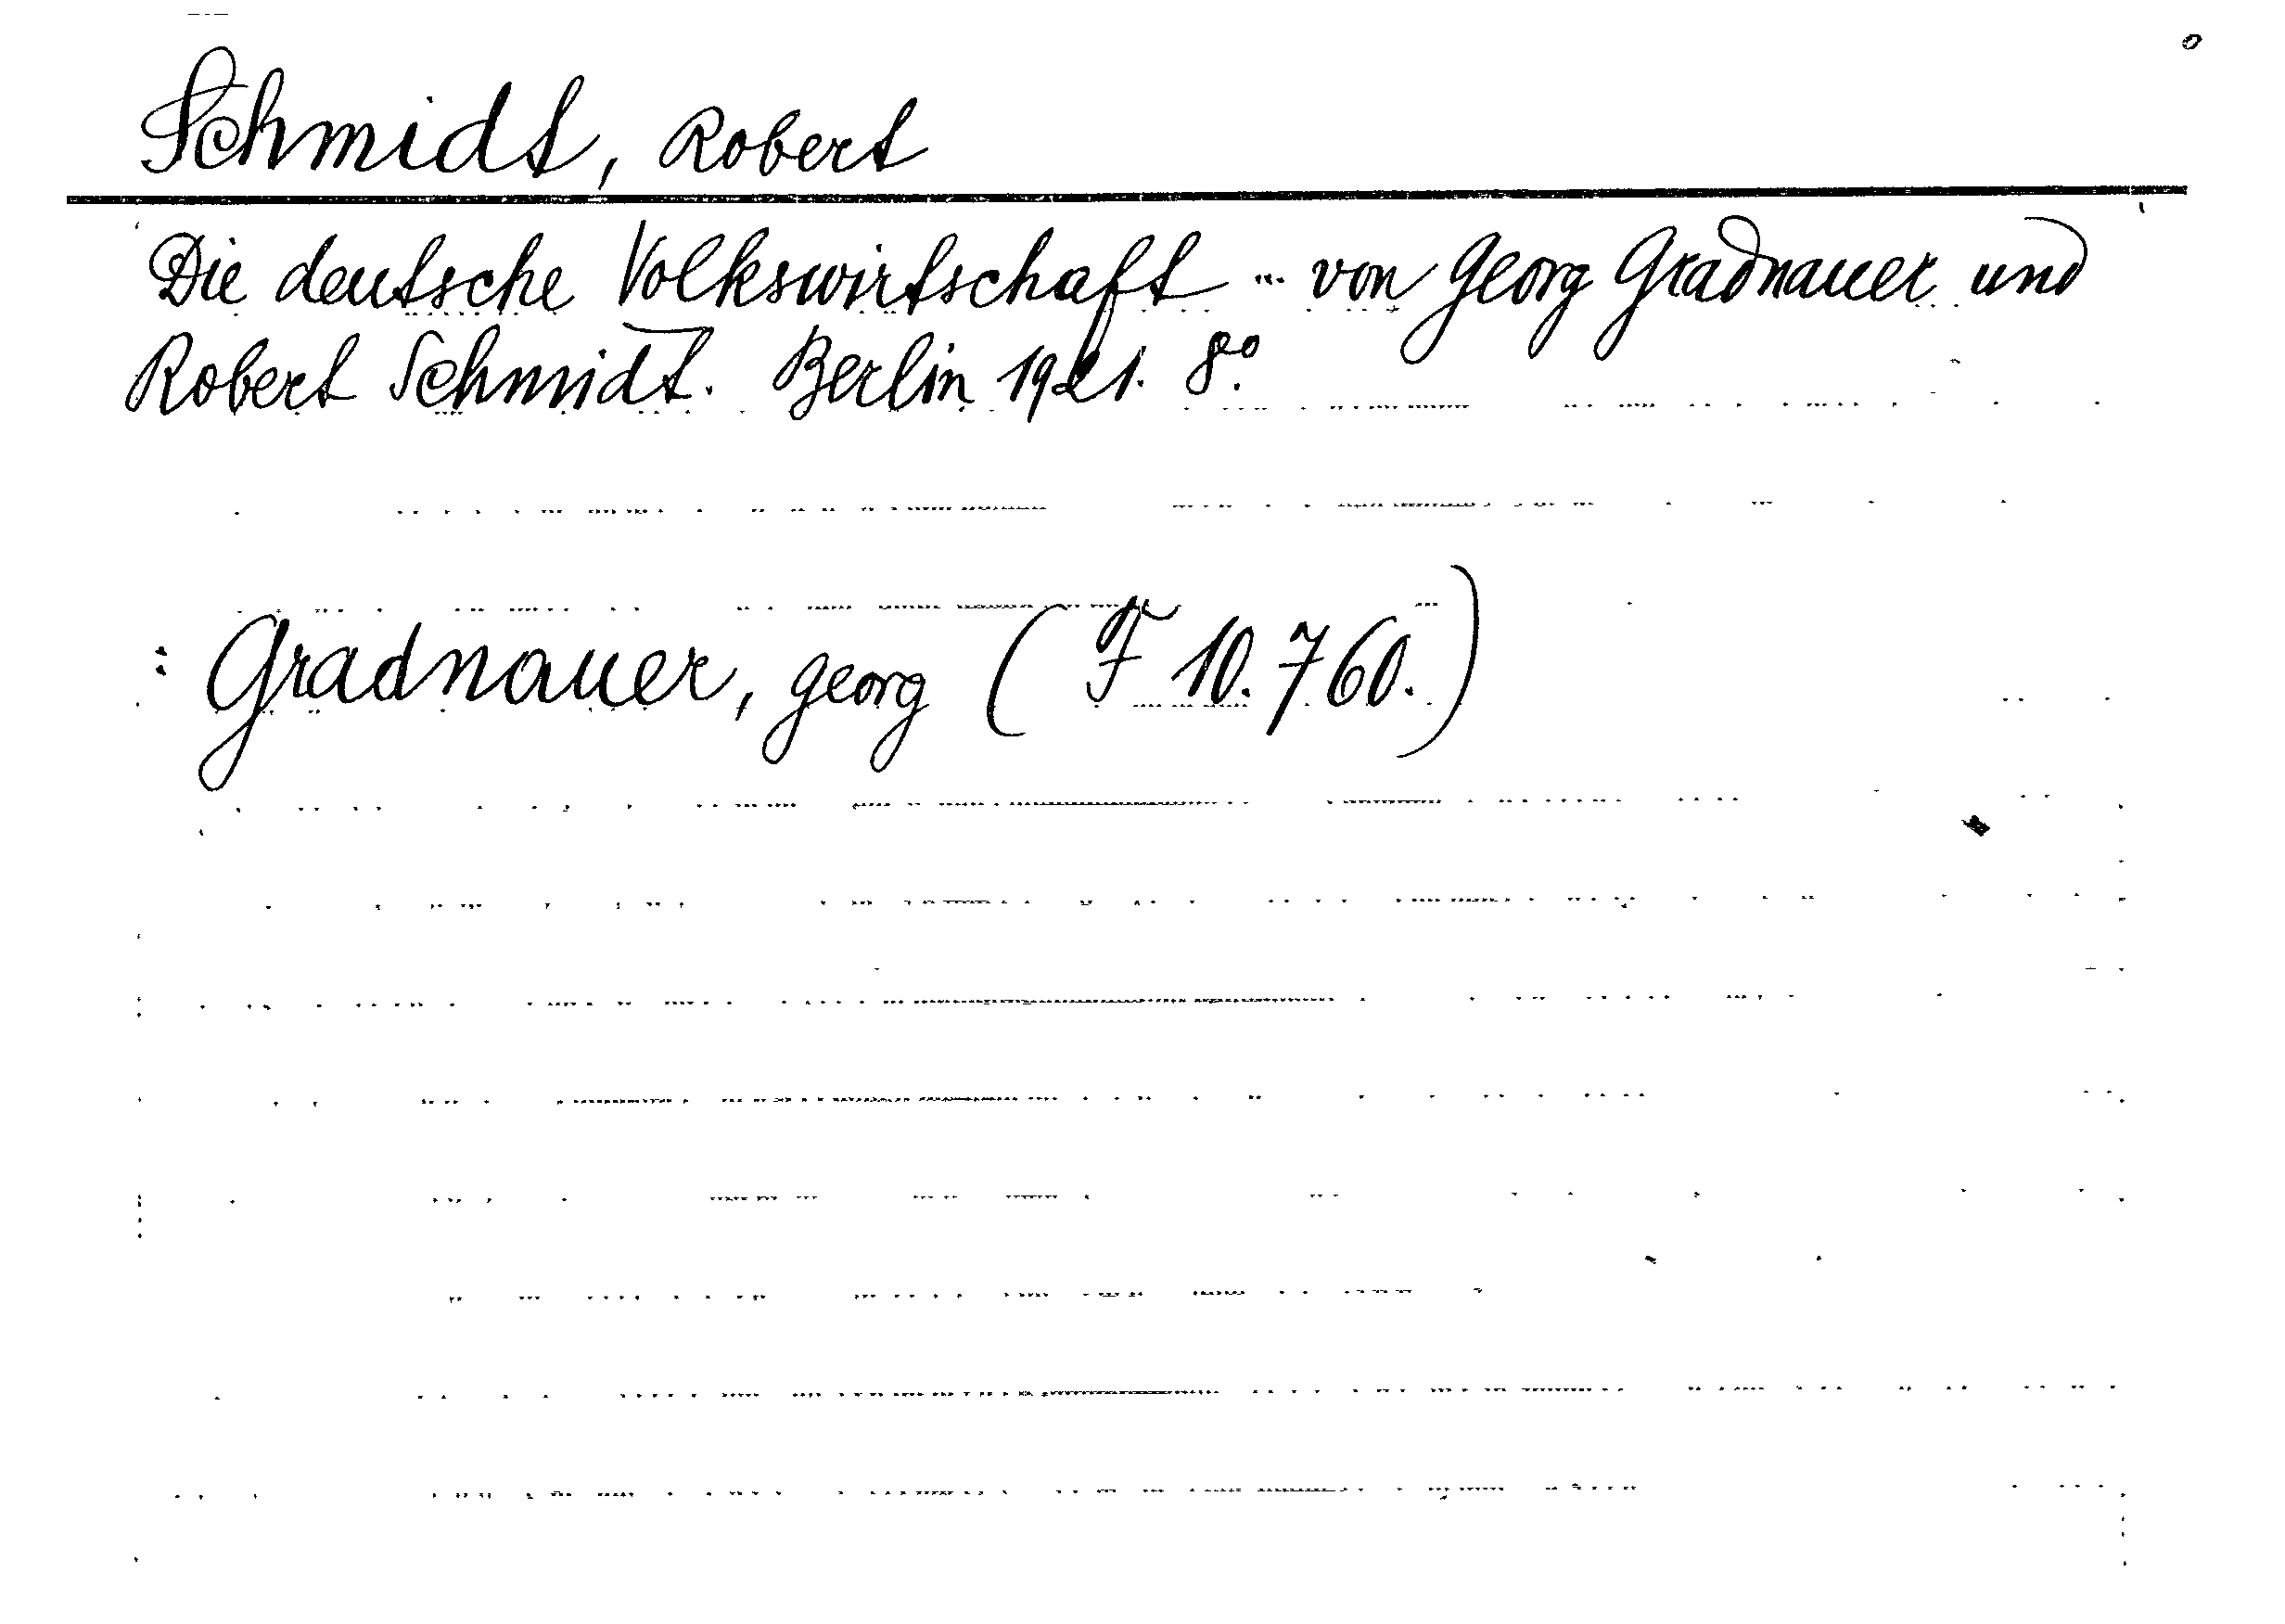 Schmidt, Robert
Die deutsche Volkswirtschaft ... von Georg Gradnauer und
Robert Schmidt. Berlin 1921. 8°.
: Gradnauer, Georg (F 10.760.)